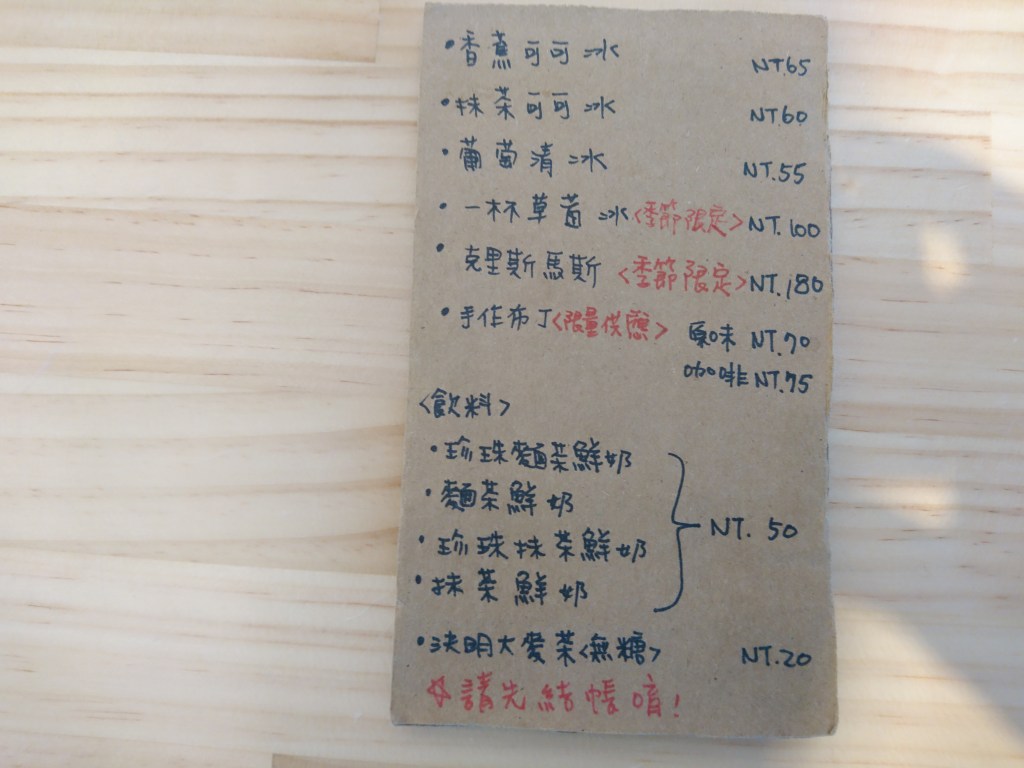 •香蕉可可冰 NT.65
•抹茶可可冰 NT.60
•葡萄清冰 NT.55
•一杯草莓冰<季節限定> NT.100
•克里斯馬斯 <季節限定> NT.180
•手作布丁<限量供應> 原味 NT.70
咖啡 NT.75
<飲料>
•珍珠麵茶鮮奶
•麵茶鮮奶
NT. 50
•珍珠抹茶鮮奶
•抹茶鮮奶
•決明大麥茶<無糖> NT.20
☆請先結帳唷!